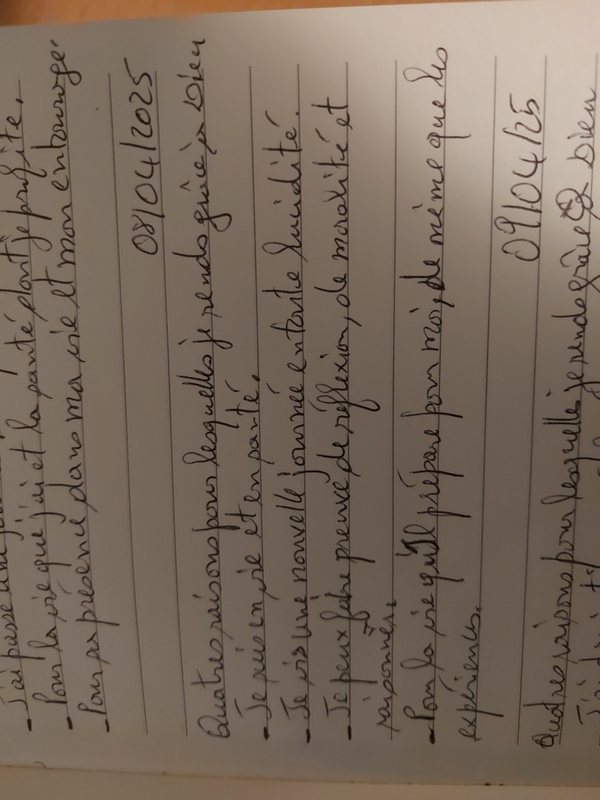 - J'ai passé une
- Pour la vie que j'ai et la santé dont je profite.
- Pour sa présence dans ma vie et mon entourage
08/04/2025
Quatres raisons pour lesquelles je rends grâce à Dieu
- Je suis en vie et en santé.
- Je vis une nouvelle journée en toute lucidité.
- Je peux faire preuve de réflexion, de moralité et
raisonnère
- Pour la vie qu'Il prépare pour moi, de même que les
expériences.
09/04/25
Quatres raisons pour lesquelles je rends grâce à Dieu